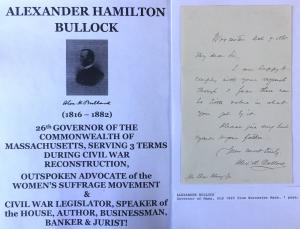 ALEXANDER HAMILTON
BULLOCK
Alex. H. Bullock
(1816 – 1882)
26th GOVERNOR OF THE
COMMONWEALTH OF
MASSACHUSETTS, SERVING 3 TERMS
DURING CIVIL WAR
RECONSTRUCTION,
OUTSPOKEN ADVOCATE of the
WOMEN'S SUFFRAGE MOVEMENT
&
CIVIL WAR LEGISLATOR, SPEAKER of
the HOUSE, AUTHOR, BUSINESSMAN,
BANKER & JURIST!
Worcester
My dear Sir,
I am happy to
comply with your request
though I fear there can
be little value in what
you get by it.
Please give my best
to your father.
Yours most truly
Alex. H. Bullock
ALEXANDER BULLOCK
Governor of Mass. ALS 1865 from Worcester Mass. 1 page.